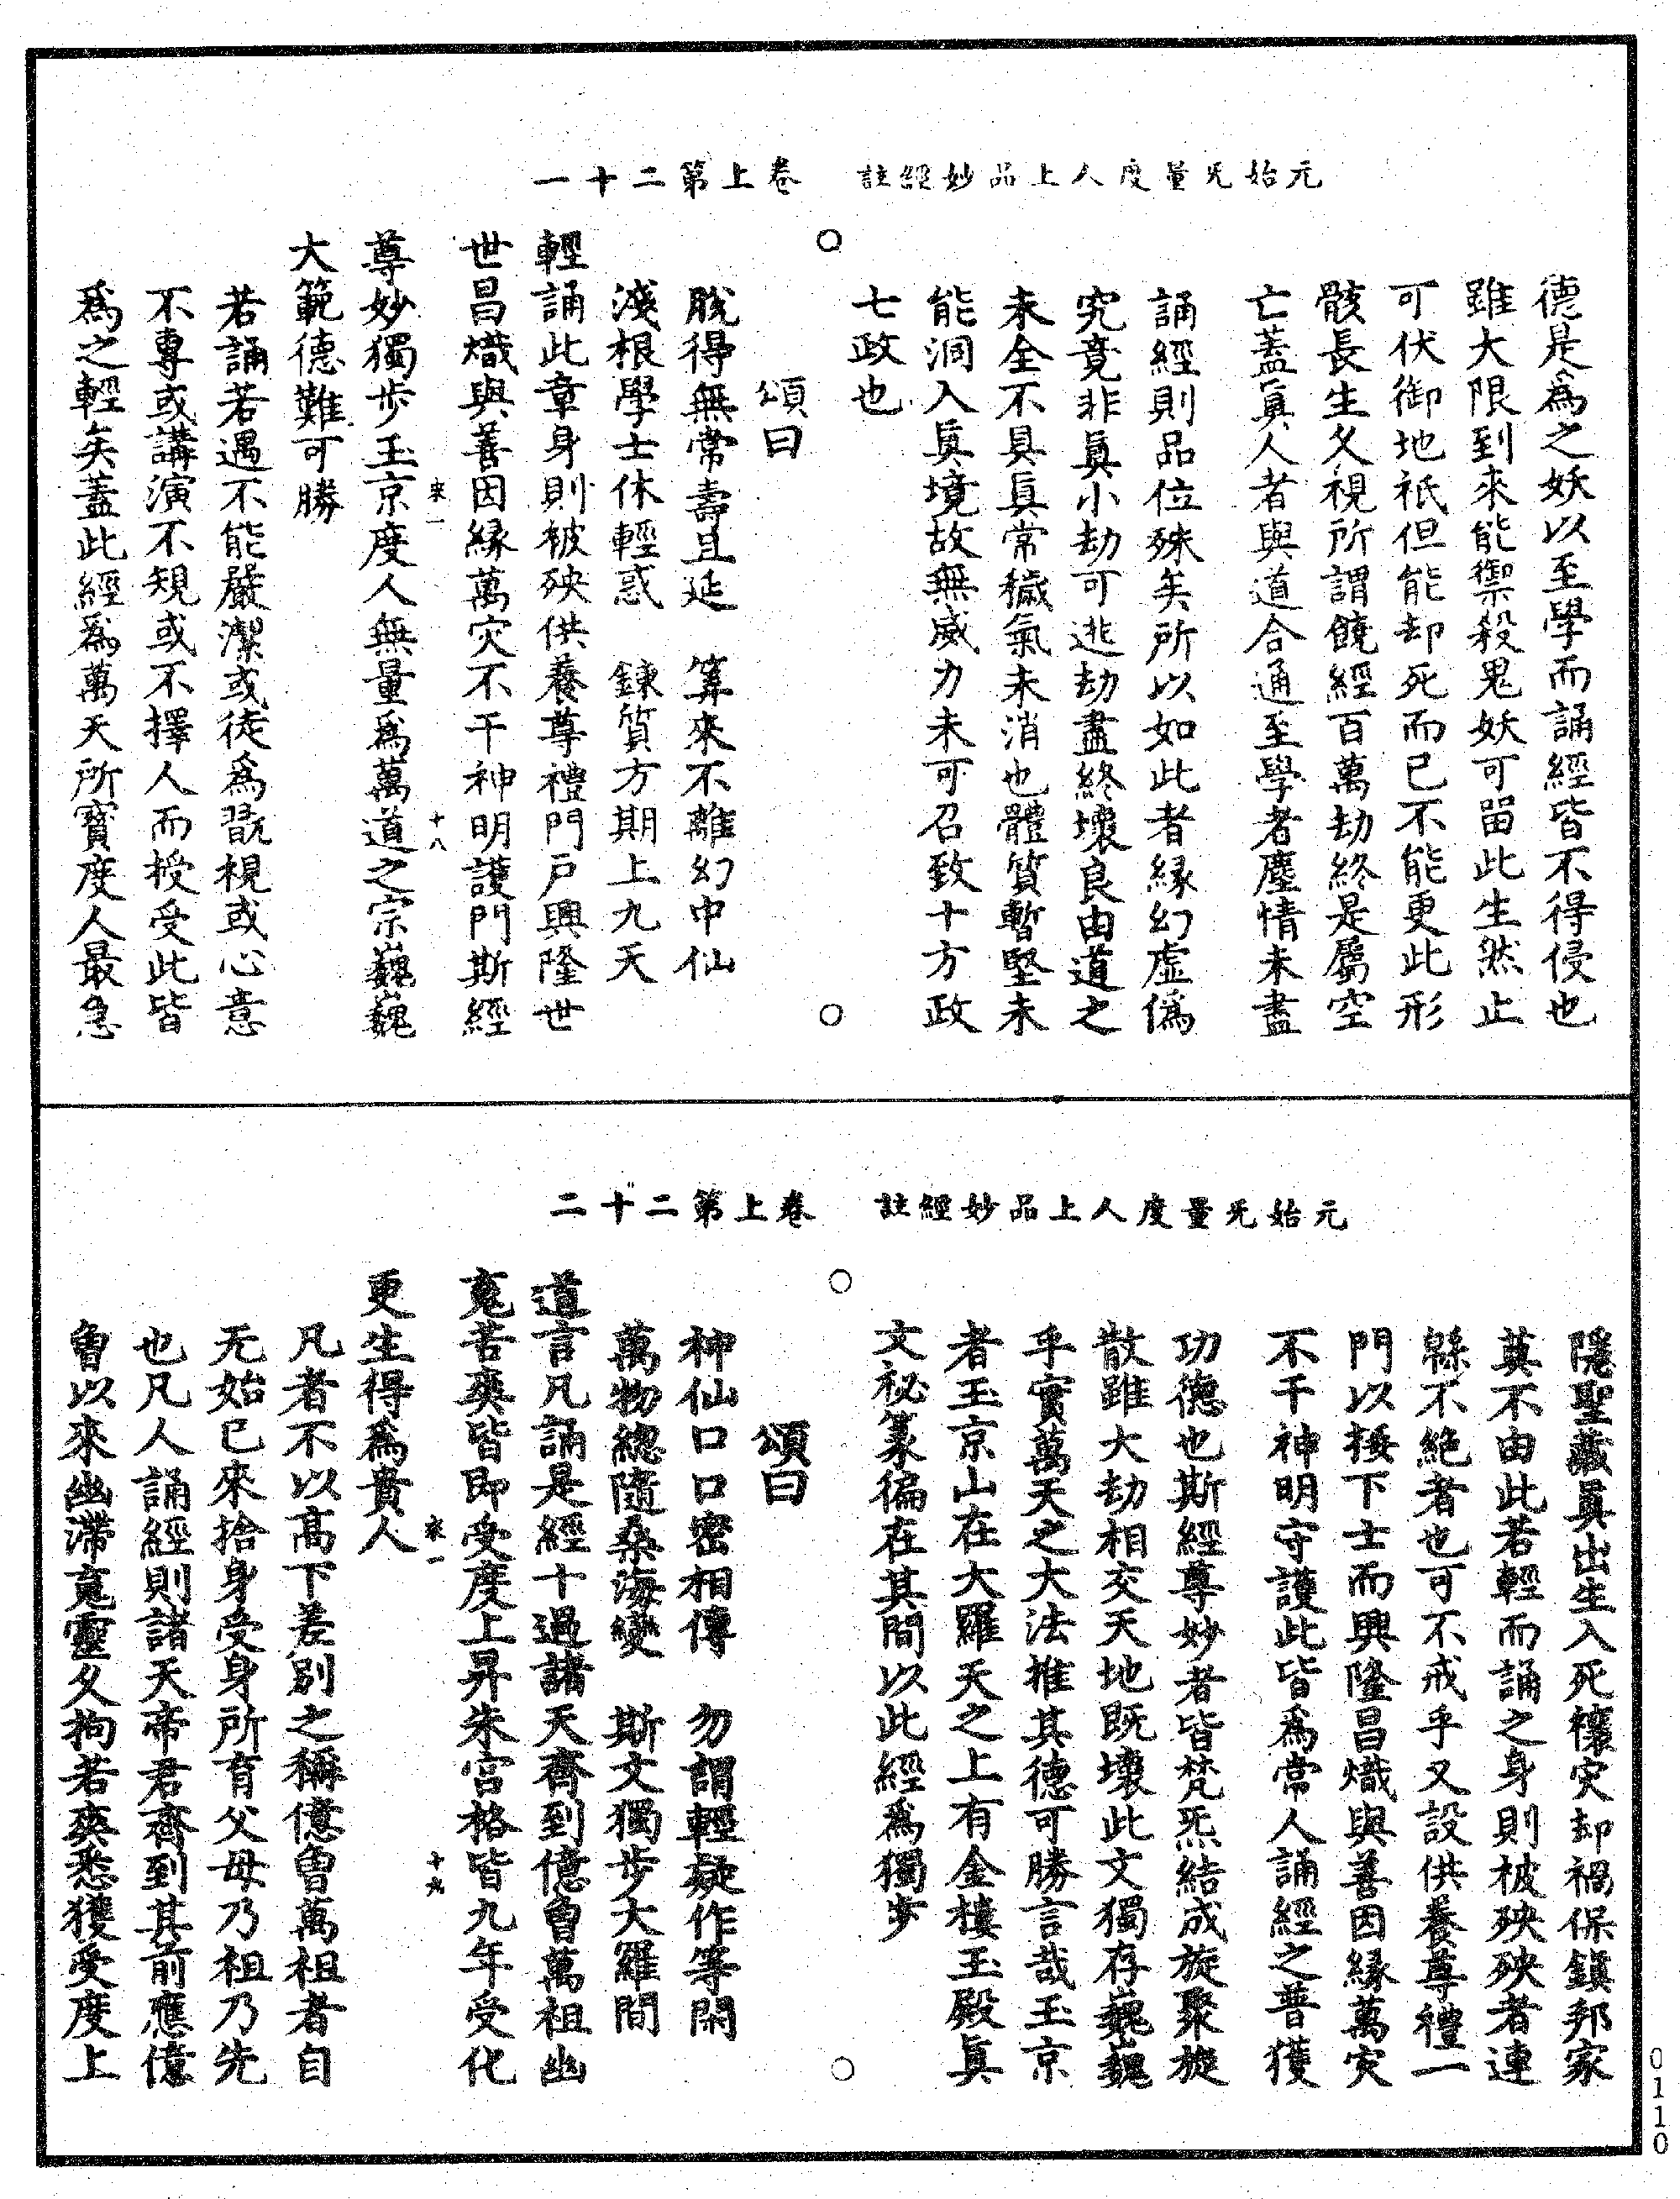 元始无量度人上品妙經註　卷上第二十一
德是為之妖以至學而誦經皆不得侵也
雖大限到來能禦殺鬼妖可留此生然止
可伏御地祇但能却死而已不能更此形
骸長生久視所謂饒經百萬劫終是屬空
亡蓋真人者與道合通至學者塵情未盡
誦經則品位殊矣所以如此者緣幻虛偽
究竟非真小劫可逃劫盡終壞良由道之
未全不具真常穢氣未消也體質暫堅未
能洞入真境故無威力未可召致十方政
七政也
頌曰
脫得無常壽且延　筭來不離幻中仙
淺根學士休輕惑　鍊質方期上九天
輕誦此章身則被殃供養尊禮門戶興隆世
世昌熾與善因緣萬灾不干神明護門斯經
來一　十八
尊妙獨步玉京度人無量為萬道之宗巍巍
大範德難可勝
若誦若遇不能嚴潔或徒為翫視或心意
不專或講演不規或不擇人而授受此皆
為之輕矣蓋此經為萬天所寶度人最急
元始无量度人上品妙經註　卷上第二十二
隱聖藏真出生入死禳灾却禍保鎮邦家
莫不由此若輕而誦之身則被殃殃者連
緜不絕者也可不戒乎又設供養尊禮一
門以接下士而興隆昌熾與善因緣萬灾
不干神明守護此皆為常人誦經之普獲
功德也斯經尊妙者皆梵炁結成旋聚旋
散雖大劫相交天地既壞此文獨存巍巍
乎實萬天之大法推其德可勝言哉玉京
者玉京山在大羅天之上有金樓玉殿真
文祕篆徧在其間以此經為獨步
頌曰
神仙口口密相傳　勿謂輕疑作等閑
萬物總隨桑海變　斯文獨步大羅間
道言凡誦是經十過諸天齊到億曾萬祖幽
䰟苦爽皆即受度上昇朱宮格皆九年受化
來一　十九
更生得為貴人
凡者不以高下差別之稱億曾萬祖者自
无始已來捨身受身所育父母乃祖乃先
也凡人誦經則諸天帝君齊到其前應億
曾以來幽滯䰟靈久拘若爽悉獲受度上
0110